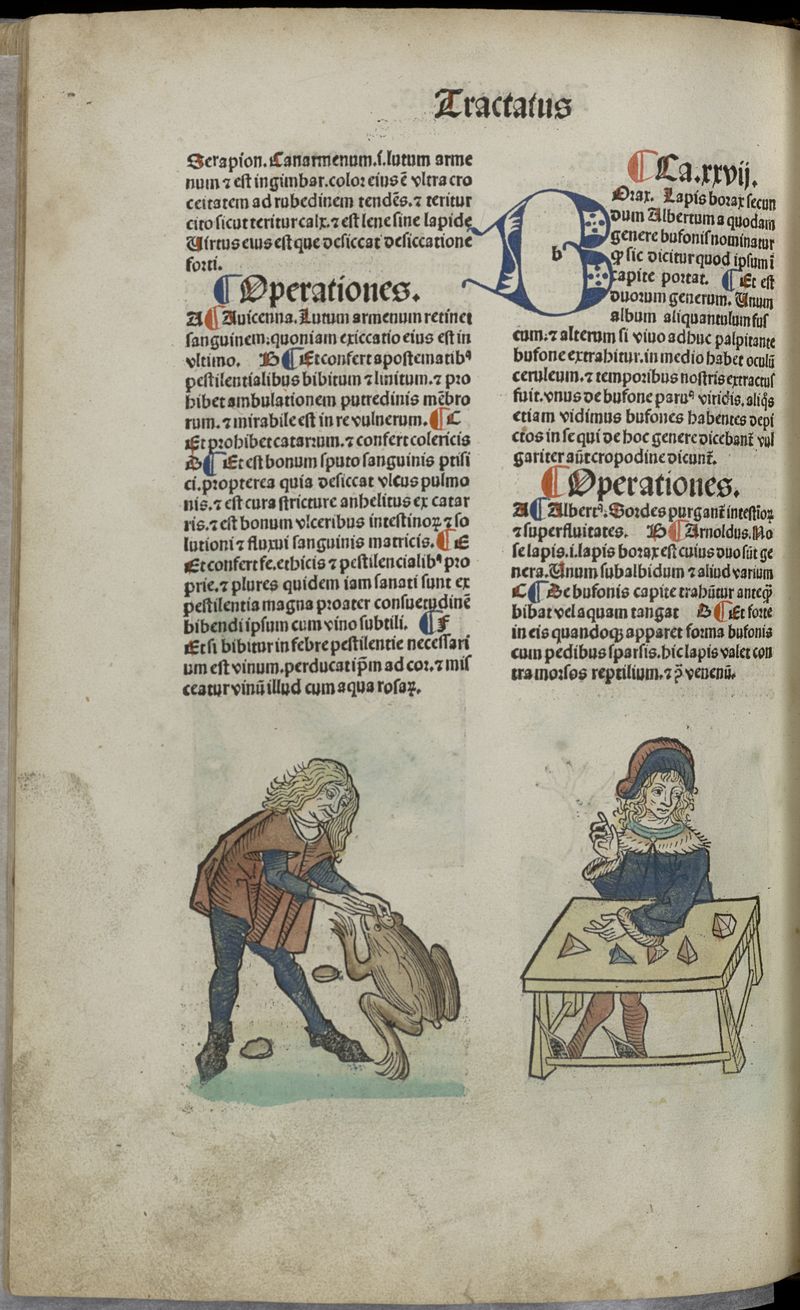 Tractatus
Serapion. Lanarmenum.i.lutum arme
num ⁊ est in gimbar. color eius ē vltra cro
ceitatem ad rubedinem tendēs. ⁊ teritur
cito sicut teritur calx. ⁊ est lene sine lapide
Uirtus eius est que desiccat desiccationē
forti.
¶ Operationes.
A ¶ Auicenna. Lutum armenum retinet
sanguinem: quoniam exiccatio eius est in
vltimo. B ¶ Et confert apostematibꝰ
pestilentialibus bibitum ⁊ linitum. ⁊ pro
hibet ambulationem putredinis mēbro
rum. ⁊ mirabile est in re vulnerum. ¶ C
Et prohibet catarrum. ⁊ confert colericis
D ¶ Et est bonum sputo sanguinis ptisi
ci. propterea quia desiccat vlcus pulmo
nis. ⁊ est cura stricture anhelitus ex catar
ris. ⁊ est bonum vlceribus intestinoꝝ ⁊ so
lutioni ⁊ fluxui sanguinis matricis. ¶ E
Et confert fe. ethicis ⁊ pestilencialibꝰ pro
prie. ⁊ plures quidem iam sanati sunt ex
pestilentia magna proater consuetudinē
bibendi ipsum cum vino subtili. ¶ F
Et si bibitur in febre pestilentie necessari
um est vinum. perducat ip̄m ad cor. ⁊ mis
ceatur vinū illud cum aqua rosaꝝ.
¶ Ca.xxvij.
b
Orax. Lapis borax secun
dum Albertum a quodam
genere bufonis nominatur
ꝙ sic dicitur quod ipsum ī
capite portat. ¶ Et est
duorum generum. Unum
album aliquantulum fus
cum. ⁊ alterum si viuo adhuc palpitante
bufone extrahitur. in medio habet oculū
ceruleum. ⁊ temporibus nostris extractus
fuit. vnus de bufone paruꝰ viridis. aliq̄s
etiam vidimus bufones habentes depi
ctos in se qui de hoc genere dicebant̄ vul
gariter aūt cropodine dicunt̄.
¶ Operationes.
A ¶ Albertꝰ. Sordes purgant̄ intestīoꝝ
⁊ superfluitates. B ¶ Arnoldus. No
se lapis.i.lapis borax est cuius duo sūt ge
nera. Unum subalbidum ⁊ aliud varium
C ¶ De bufonis capite trahūtur anteq̄ꝫ
bibat vel aquam tangat D ¶ Et forte
in eis quandoqꝫ apparet forma bufonis
cum pedibus sparsis. hic lapis valet con
tra morsos reptilium. ⁊ ꝓ venenū.